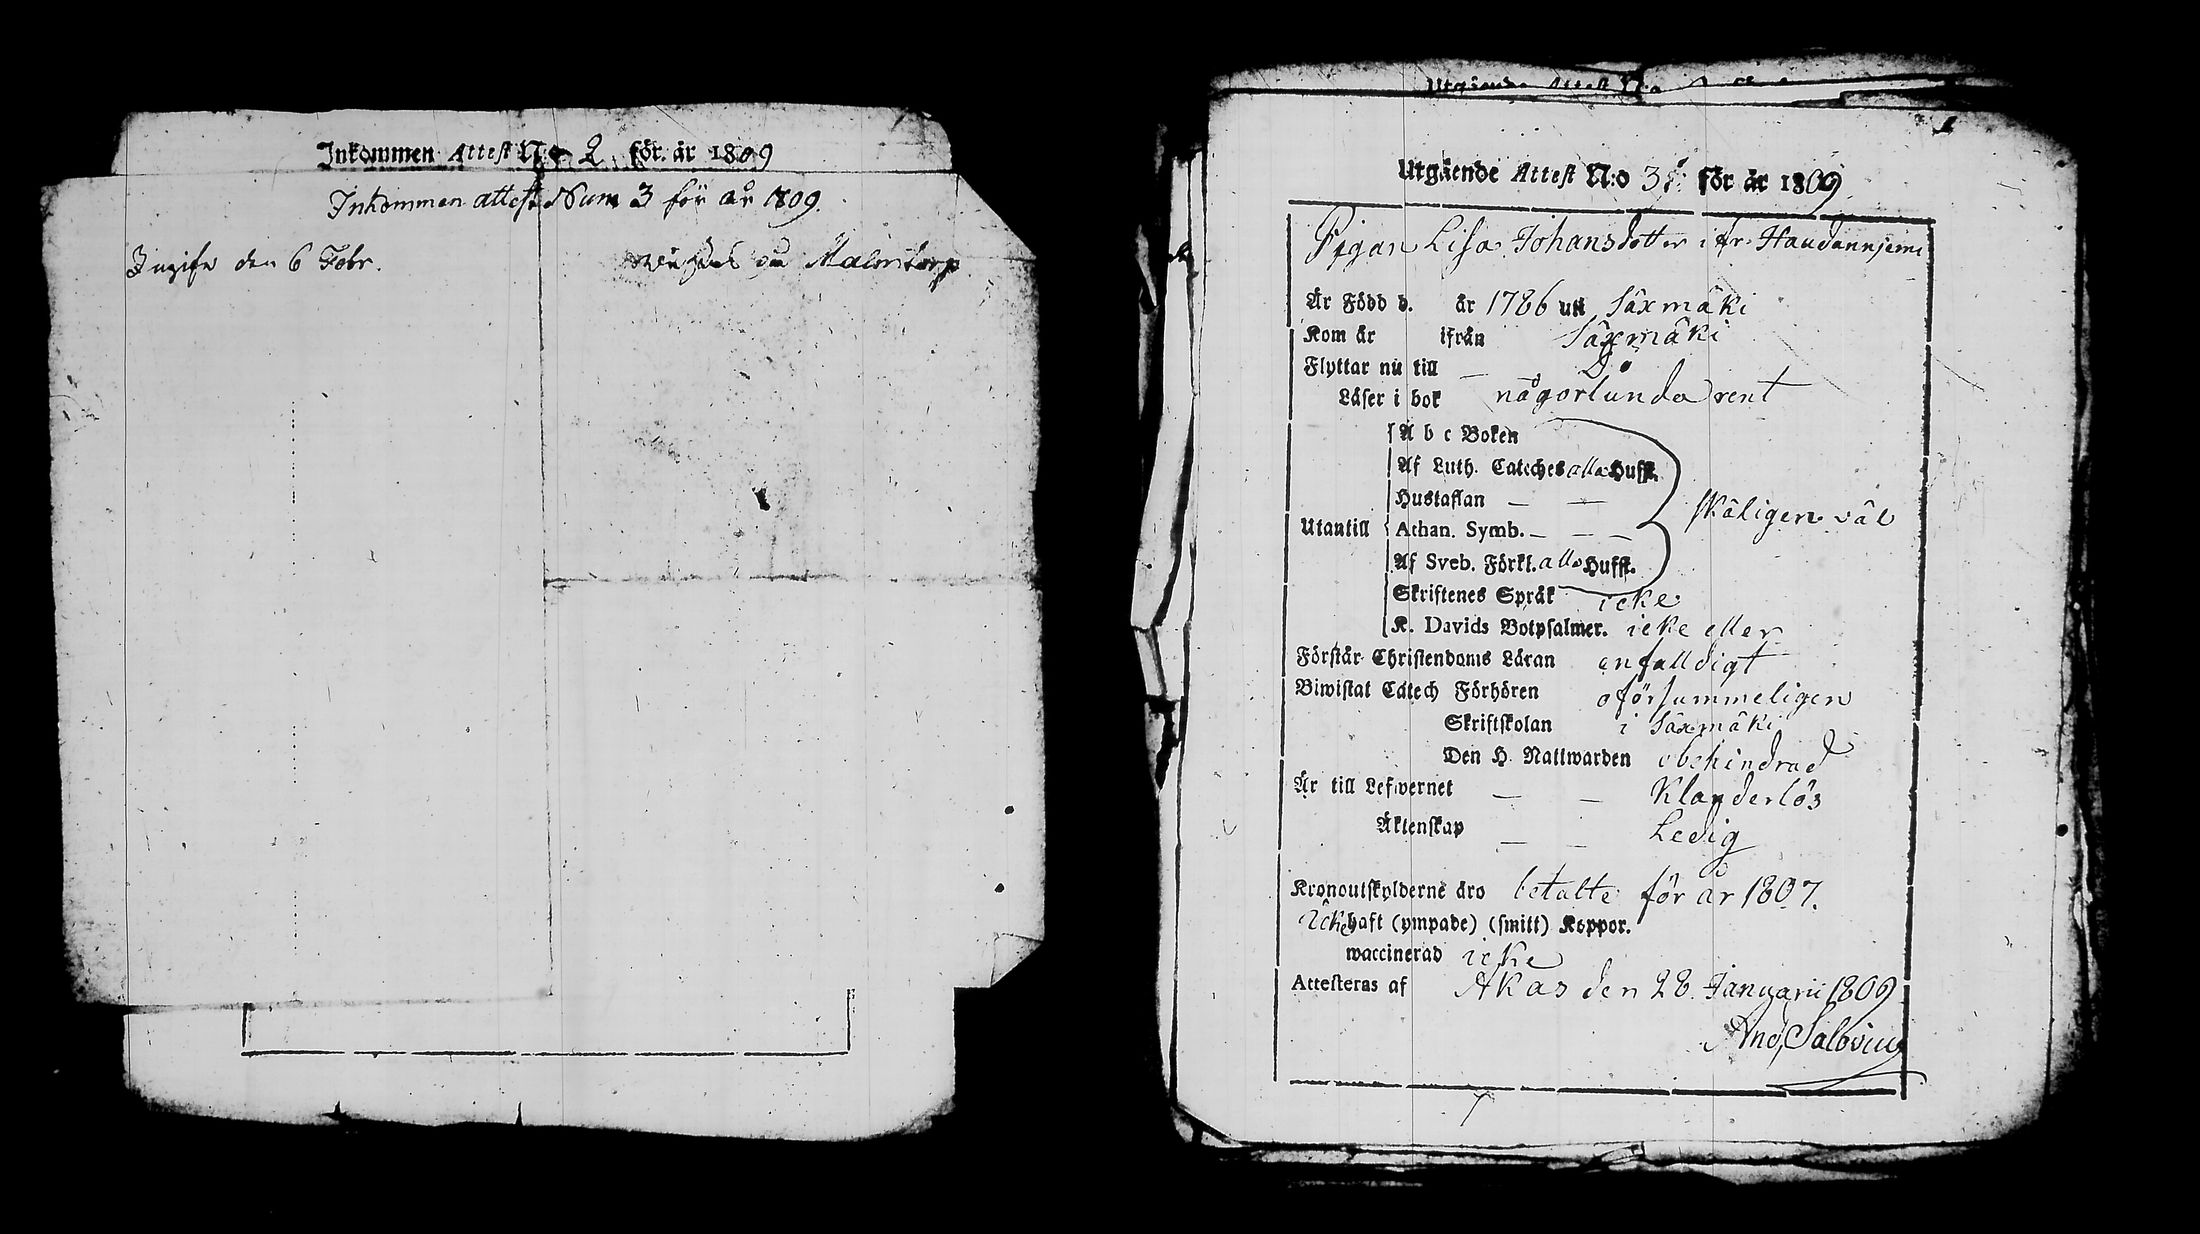 Inkommen Attest N:o 2 för år 1809
Inkommen attest Num 3 för år 1809.
Ingifn den 6 Febr.
Malmtorp
Utgående Attest N:o
Utgående Attest N:o 3 för år 1809
Pigan Lisa Johansdotter ifr. Haudannjemi
Är Född d. år 1786 uti Säxmäki
Kom år ifrån Säxmäki
Flyttar nu till — Do
Läser i bok någorlunda rent
A b c Boken
Af Luth. Cateches alla Hufst.
Hustaflan — —
Utantill Athan. Symb. — — — skäligen väl
Af Sveb. Förkl. alla Hufst.
Skriftenes Språk icke
K. Davids Botpsalmer. icke eller
Förstår Christendoms Läran enfalldigt
Biwistat Catech Förhören oförsummeligen
Skriftskolan i Säxmäki
Den H. Nattwarden obehindrad
Är till Lefwernet — — Klanderlös
Äktenskap — — Ledig
Kronoutskylderne äro betalte för år 1807.
Icke haft (ympade) (smitt) Koppor.
waccinerad icke
Attesteras af Akas den 28. Januarii 1809
And, Salovius